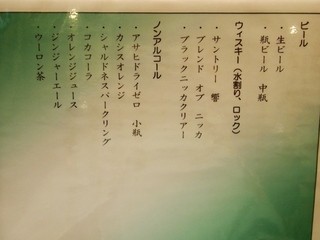 ビール
・生ビール
・瓶ビール 中瓶
ウィスキー(水割り、ロック)
・サントリー 響
・ブレンド オブ ニッカ
・ブラックニッカクリアー
ノンアルコール
・アサヒドライゼロ 小瓶
・カシスオレンジ
・シャルドネスパークリング
・コカコーラ
・オレンジジュース
・ジンジャーエール
・ウーロン茶